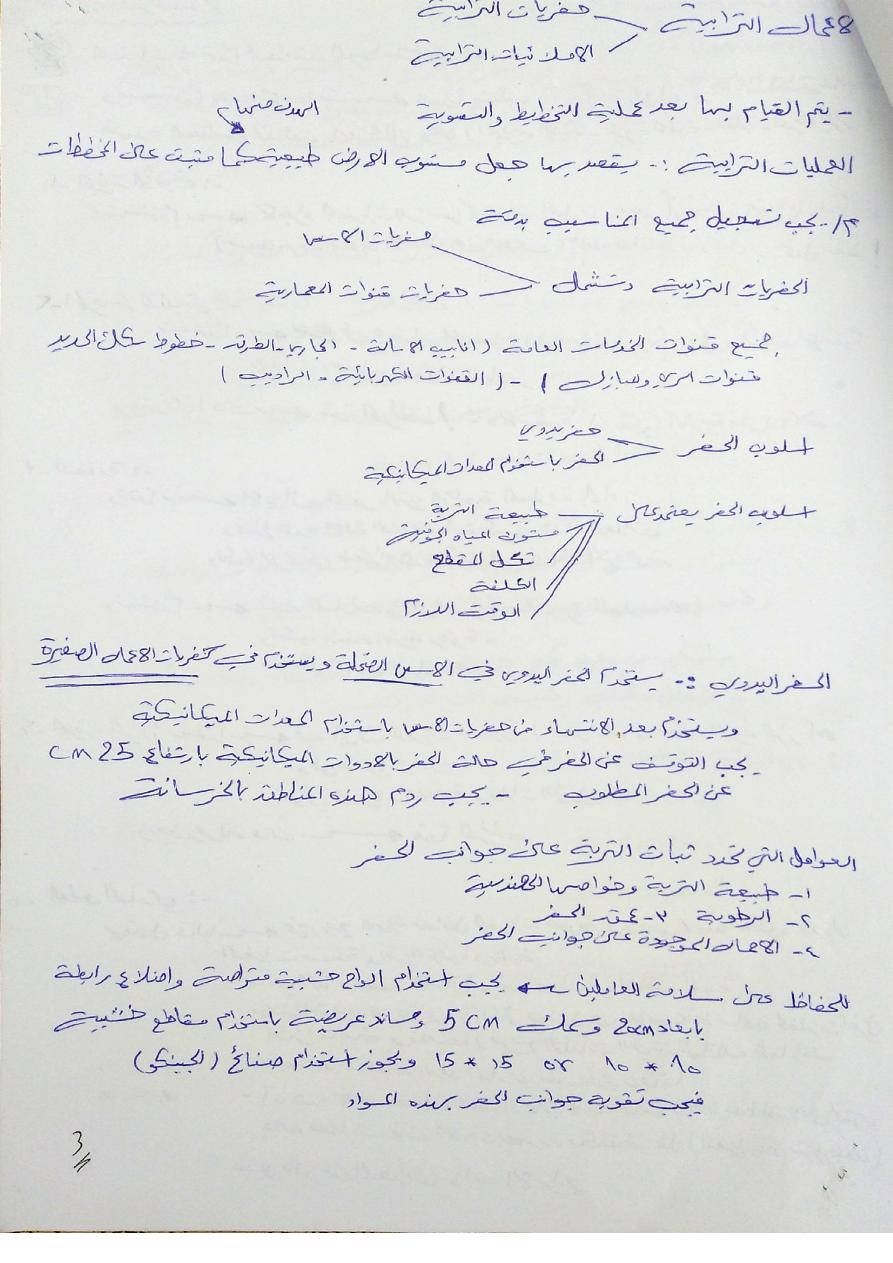 حفريات الترابية
الاعمال الترابية
الاملائيات الترابية
الهدف منها
- يتم القيام بها بعد عملية التخطيط والتسوية
العمليات الترابية :- يقصد بها جعل مستوى الارض طبيعية كما مثبت على المخططات
م/ - يجب تسجيل جميع المناسيب بدقة
حفريات الاسس
الحفريات الترابية وتشمل
حفريات قنوات المعمارية
جميع قنوات الخدمات العامة ( انابيب الاسالة - المجاري - الطرق - خطوط سكك الحديد
قنوات الري والمبازل ) - ( القنوات الكهربائية -
حفر يدوي
اسلوب الحفر
الحفر باستخدام المعدات الميكانيكية
اسلوب الحفر يعتمد على طبيعة التربة
مستوى المياه الجوفية
شكل المقطع
الكلفة
الوقت اللازم
الحفر اليدوي :- يستخدم الحفر اليدوي في الاسس الضحلة ويستخدم في حفريات الاعمال الصغيرة
ويستخدم بعد الانتهاء من حفريات الاسس باستخدام المعدات الميكانيكية
يجب التوقف عن الحفر في حالة الحفر بالادوات الميكانيكية بارتفاع 25 CM
عن الحفر المطلوب - يجب ردم هذه المناطق بالخرسانة
العوامل التي تحدد ثبات التربة على جوانب الحفر
١- طبيعة التربة وخواصها الهندسية
٢- الرطوبة ٣- عمق الحفر
٤- الاحمال الموجودة على جوانب الحفر
للحفاظ على سلامة العاملين يجب استخدام الواح خشبية متراصة واضلاع رابطة
بابعاد 20cm وسمك 5 CM ومساند عريضية باستخدام مقاطع خشبية
١٠ * ١٠ or ١٥ * ١٥ ويجوز استخدام صفائح (الجينكو)
فيجب تقوية جوانب الحفر بهذه المواد
3